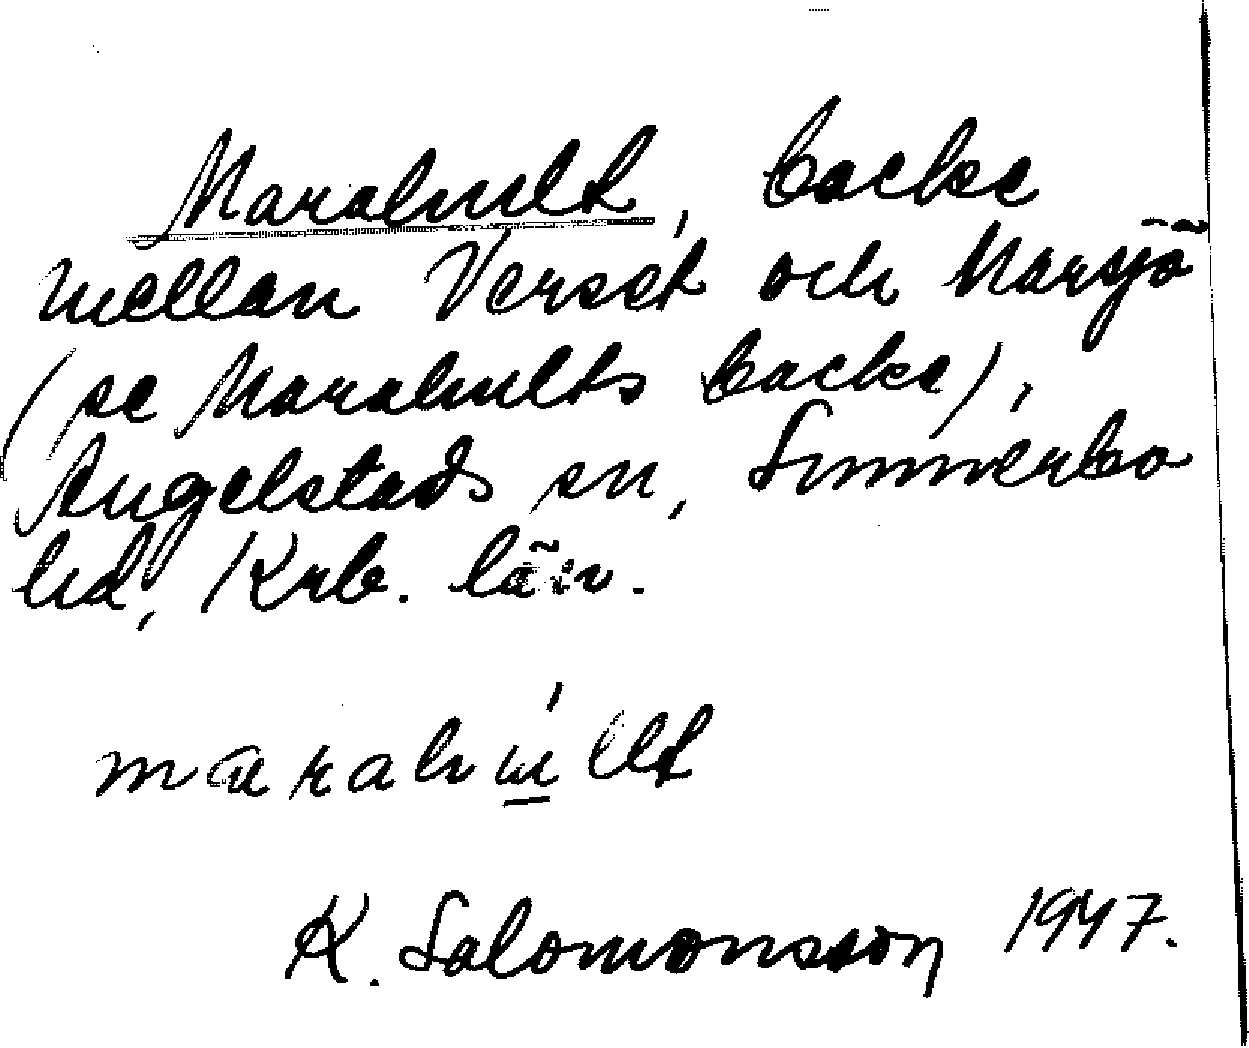 Marahult, backe
mellan Verset och Marsjö
(se Marahults backe),
Angelstads sn, Sunnerbo
hd, Krb. län.
marahúllt
K. Salomonsson 1947.